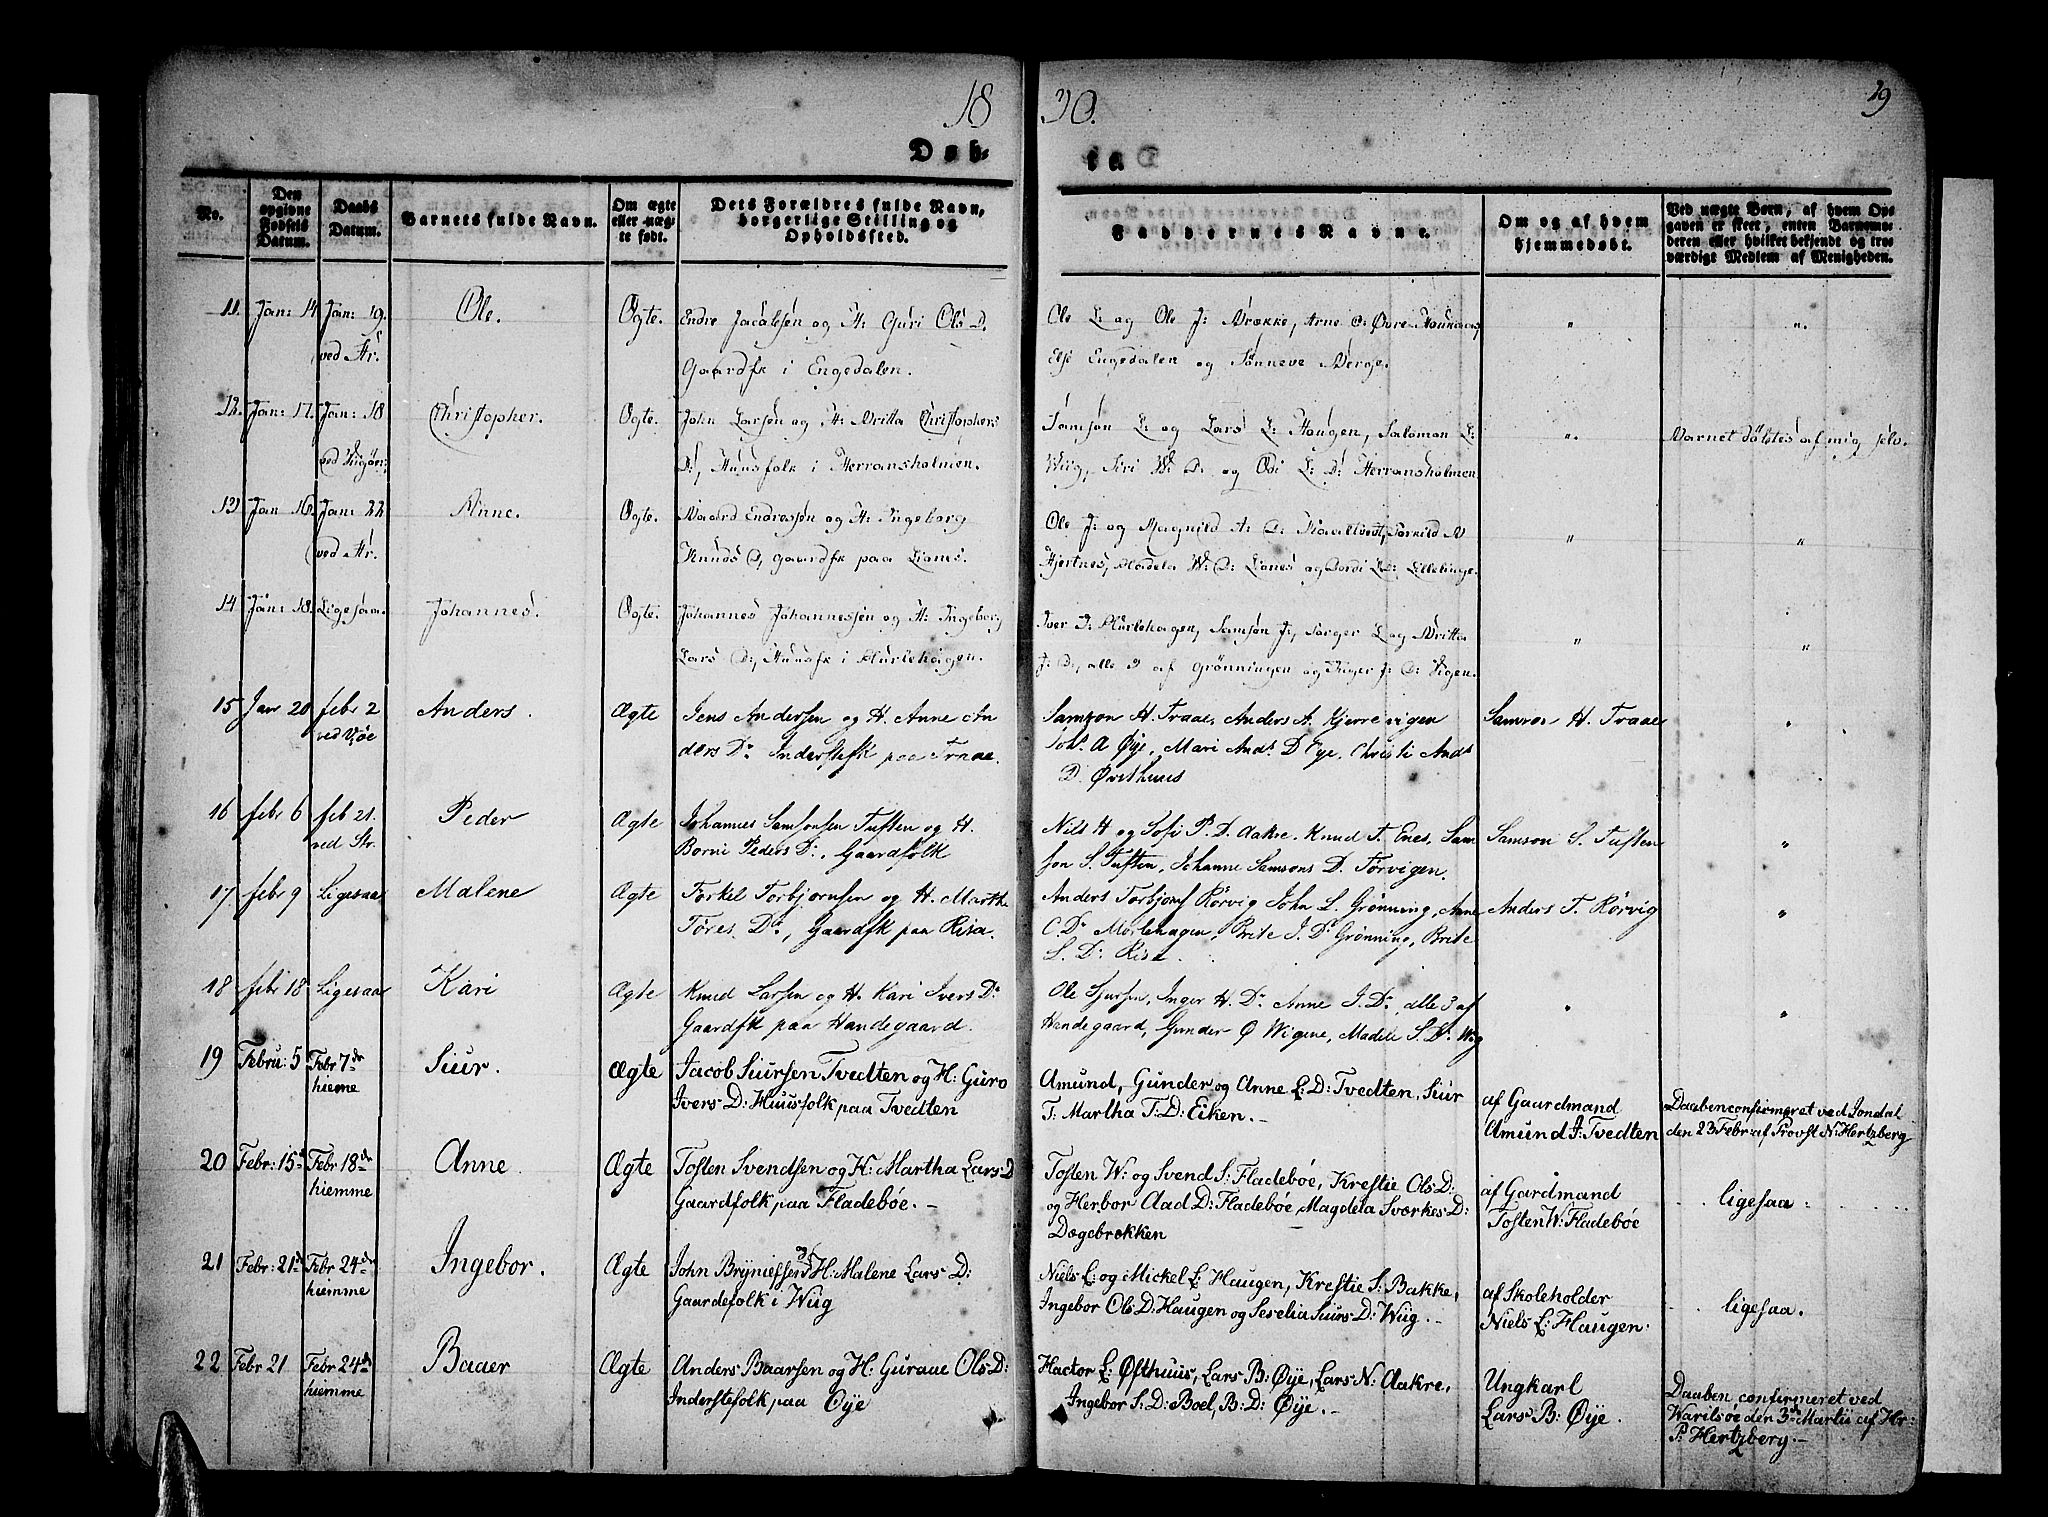 18 30. 29
Døb- te
No.
Den opgivne Fødsels Datum.
Daabs Datum.
Barnets fulde Navn.
Om ægte eller uægte født.
Dets Forældres fulde Navn, borgerlige Stilling og Opholdssted.
Faddernes Navne.
Om og af hvem hjemmedøbt.
Ved uægte Børn, af hvem Opgaven er skeet, enten Barnemoderen eller hvilket bekjendt og troværdigt Medlem af Menigheden.
11. Jan: 14 Jan: 19. ved Str. Ole. Ægte.
Endre Jacobsen og H: Guri Ols D.
Gaardfk i Engedalen.
Ole L: og Ole J:
Engedalen og Sønneve
12. Jan: 17. Jan: 18 Christopher. Ægte.
John Larsen og H: Britta Christophers
D:, Huusfolk i Herransholmen.
Samson L: og Lars L: Haugen, Salomon L:
Wiig, Siri D: og L: D: Herransholmen.
Barnet døbtes af mig selv.
13 Jan 16. Jan: 22 ved Str. Anne. Ægte.
Baard Endresen og H: Ingeborg
Knuds D, gaardfk paa Lionés.
Ole J: og Magnild A: D:
Hjertnes, D: Lionés og L: D: Lillelinge.
14 Jan: 18. Ligesaa. Johannes. Ægte.
Johannes Johannessen og H: Ingeborg
Lars D:, Huusfk i
Iver Samson J:, Torger L og Britta
J: D:, alle 3 af Grønningen og Inger J: D: Vigen.
15 Jan 20 febr 2 Anders. Ægte
Jens Andersen og H. Anne An
ders Dr Inderstefk paa Traae.
Samson H. Traae, Anders A. Kjerrevigen
Joh. A Øye, Mari Ands D Øye, Christi Ands
D. Østhuus
Samson H. Traae
16 febr 6 feb 21. ved Str. Peder Ægte
Johannes Samsonsen Tuften og H.
Borni Peders D:, Gaardfolk
Nils H og Sofi P. D. Aakre. Knud T. Enes, Sam
son S. Tuften, Johanne Samsons D. Tørvigen.
Samson S. Tuften
17 febr 9 Ligesaa Malene Ægte
Torkel Torbjørnsen og H. Marthe
Tores Dr., Gaardfk paa Risa.
Anders Torbjørnf Rørvig John L. Grønning, Anne
C. Dr Morlehagen, Brite J. Dr Grønning, Brite
S. Dr Risa.
Anders T. Rørvig
18 febr 18 Ligesaa Kari Ægte
Knud Larsen og H. Kari Ivers Dr
Gaardfk paa Handegaard.
Ole Sjursen, Inger H. Dr Anne J. Dr, alle 3 af
Handegaard, Gunder Ø Wigene, Madele S. Dr Wig
19 Febru: 5 Febr 7de hiemme Siur. Ægte
Jacob Siursen Tvedten og H: Guro
Ivers D: Huusfolk paa Tvedten
Amund, Gunder og Anne L: D: Tvedten, Siur
T: Martha T: D: Eiken.-
af Gaardmand
Amund J: Tvedten
Daaben confirmeret ved Jondal
den 23 Febr: af Provst N: Hertzberg
20 Febr: 15de Febr 18de hiemme Anne Ægte
Tosten Svendsen og H: Martha Lars D
Gaardfolk paa Fladebøe.-
Tosten W: og Svend S: Fladebøe, Krestie Ols D:
og Herbor Aad D: Fladebøe, Magdela Sværkes D:
Døgebrekken
af Gardmand
Tosten W: Fladebøe
ligesaa
21 Febr: 21de Febr 24de hiemme Ingebor. Ægte
John Brynielsen og H: Malene Lars D:
Gaardefolk i Wiig
Niels L: og Mickel L: Haugen, Krestie S: Bakke,
Ingebor Ols D: Haugen og Serelia Siurs D: Wiig.-
af Skoleholder
Niels L: Haugen.
ligesaa.
22 Febr 21 Febr 24de hiemme Baaer Ægte
Anders Baarsen og H: Guraae Ols D:
Inderstefolk paa Øye
Hactor L: Øfthuus, Lars B: Øye, Lars N: Aakre,
Ingebor S: D: Boel, B: D: Øye.-
Ungkarl
Lars B: Øye.
Daaben, confirmeret ved
Warilsøe den 3de Martii af Hr:
P: Hertzberg.-